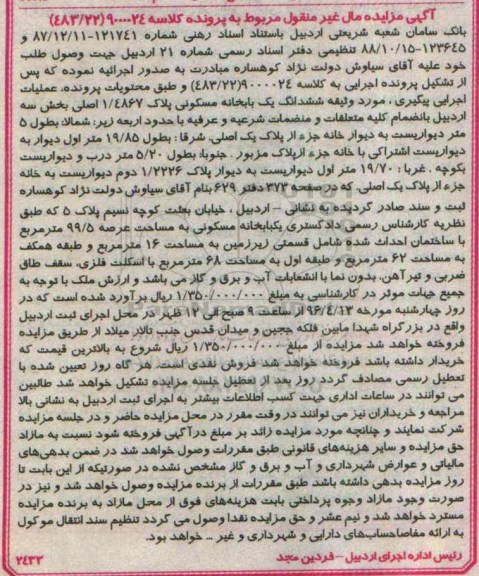 آگهی مزایده مال غیر منقول مربوط به پرونده کلاسه ۹۰۰۰۰۲۴(۴۸۳/۲۲)
بانک سامان شعبه شریعتی اردبیل باستناد اسناد رهنی شماره ۱۲۱۷۴۱-۸۷/۱۲/۱۱ و
۱۲۳۶۴۵-۸۸/۱۰/۱۵ تنظیمی دفتر اسناد رسمی شماره ۲۱ اردبیل جهت وصول طلب
خود علیه آقای سیاوش دولت نژاد کوهساره مبادرت به صدور اجرائیه نموده که پس
از تشکیل پرونده اجرایی به کلاسه ۹۰۰۰۰۲۴(۴۸۳/۲۲) و طبق محتویات پرونده، عملیات
اجرایی پیگیری ، مورد وثیقه ششدانگ یک بابخانه مسکونی پلاک ۱/۴۸۶۷ اصلی بخش سه
اردبیل بانضمام کلیه متعلقات و منضمات شرعیه و عرفیه با حدود اربعه زیر: شمالا: بطول ۵
متر دیواریست به دیوار خانه جزء از پلاک یک اصلی، شرقا : بطول ۱۹/۸۵ متر اول دیوار به
دیواریست اشتراکی با خانه جزء ازپلاک مزبور . جنوبا: بطول ۵/۲۰ متر درب و دیواریست
بکوچه . غربا : ۱۹/۷۰ متر اول دیواریست به دیوار پلاک ۱/۲۲۲۶ دوم دیواریست به خانه
جزء از پلاک یک اصلی، که در صفحه ۳۷۳ دفتر ۶۲۹ بنام آقای سیاوش دولت نژاد کوهساره
ثبت و سند صادر گردیده به نشانی – اردبیل ، خیابان بعثت کوچه نسیم پلاک ۵ که طبق
نظریه کارشناس رسمی دادگستری یکبابخانه مسکونی به مساحت عرصه ۹۹/۵ مترمربع
با ساختمان احداث شده شامل قسمتی زیرزمین به مساحت ۱۶ مترمربع و طبقه همکف
به مساحت ۶۲ مترمربع و طبقه اول به مساحت ۶۸ مترمربع با اسکلت فلزی، سقف طاق
ضربی و تیر آهن، بدون نما با انشعابات آب و برق و گاز می باشد و ارزش ملک با توجه به
جمیع جهات موثر در کارشناسی به مبلغ ۱/۳۵۰/۰۰۰/۰۰۰ ریال برآورد شده است که در
روز چهارشنبه مورخه ۹۶/۴/۱۳ از ساعت ۹ صبح الی ۱۲ ظهر در محل اجرای ثبت اردبیل
واقع در بزرگراه شهدا مابین فلکه ججین و میدان قدس جنب تالار میلاد از طریق مزایده
فروخته خواهد شد مزایده از مبلغ ۱/۳۵۰/۰۰۰/۰۰۰ ریال شروع به بالاترین قیمت که
خریدار داشته باشد فروخته خواهد شد فروش نقدی است. هر گاه روز تعیین شده با
تعطیل رسمی مصادف گردد روز بعد از تعطیل جلسه مزایده تشکیل خواهد شد طالبین
می توانند در ساعات اداری جهت کسب اطلاعات بیشتر به اجرای ثبت اردبیل به نشانی بالا
مراجعه و خریداران نیز می توانند در وقت مقرر در محل مزایده حاضر و در جلسه مزایده
شرکت نمایند و چنانچه مورد مزایده زائد بر مبلغ درآگهی فروخته شود نسبت به مازاد
حق مزایده و سایر هزینه‌های قانونی طبق مقررات وصول خواهد شد در ضمن بدهی‌های
مالیاتی و عوارض شهرداری و آب و برق و گاز مشخص نشده در صورتیکه از این بابت تا
روز مزایده بدهی داشته باشد طبق مقررات از برنده مزایده وصول خواهد شد و نیز در
صورت وجود مازاد وجوه پرداختی بابت هزینه‌های فوق از محل مازاد به برنده مزایده
مسترد خواهد شد و نیم عشر و حق مزایده نقدا وصول می گردد تنظیم سند انتقال موکول
به ارائه مفاصاحسابهای دارایی و شهرداری و غیر ... خواهد بود.
رئیس اداره اجرای اردبیل – فردین مجد
۲۴۳۲